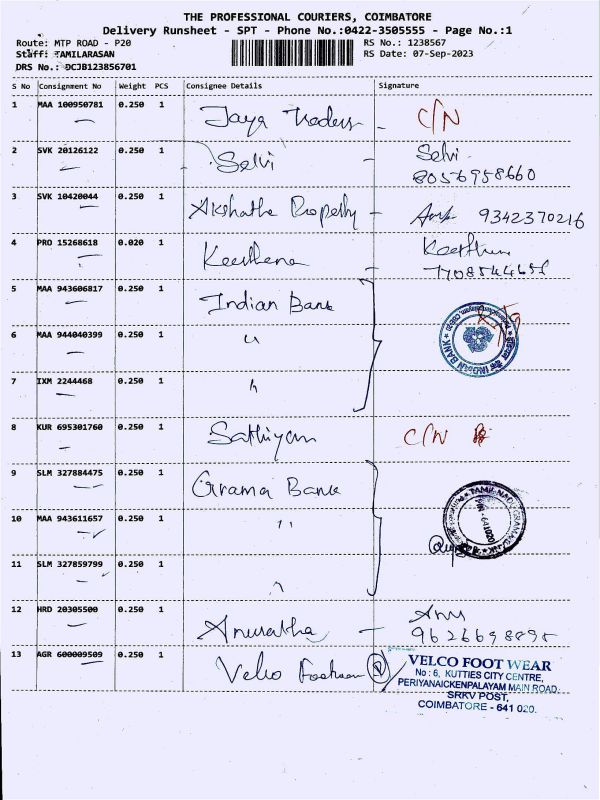 THE PROFESSIONAL COURIERS, COIMBATORE
Delivery Runsheet - SPT - Phone No.:0422-3505555 - Page No.:1
Route: MTP ROAD - P20
RS No.: 1238567
Staff: TAMILARASAN
RS Date: 07-Sep-2023
DRS No.: DCJB123856701
S No Consignment No Weight PCS Consignee Details Signature
1 MAA 100950781 0.250 1 Jaya Traders - C/N
2 SVK 20126122 0.250 1 Selvi - Selvi
8056958660
3 SVK 10420044 0.250 1 Akshatha Property - 9342370216
4 PRO 15268618 0.020 1 Keerthana -
5 MAA 943606817 0.250 1 Indian Bank
6 MAA 944040399 0.250 1 "
INDIAN BANK
7 IXM 2244468 0.250 1 "
8 KUR 695301760 0.250 1 Sathiyan C/N
9 SLM 327884475 0.250 1 Grama Bank
TAMIL NADU GRAMA BANK
PIN - 641020
10 MAA 943611657 0.250 1 "
11 SLM 327859799 0.250 1 "
12 HRD 20305500 0.250 1 Anuratha - Anu
13 AGR 600009509 0.250 1 Velco Footwear
VELCO FOOT WEAR
No : 6, KUTTIES CITY CENTRE,
PERIYANAICKENPALAYAM MAIN ROAD.
SRKV POST,
COIMBATORE - 641 020.